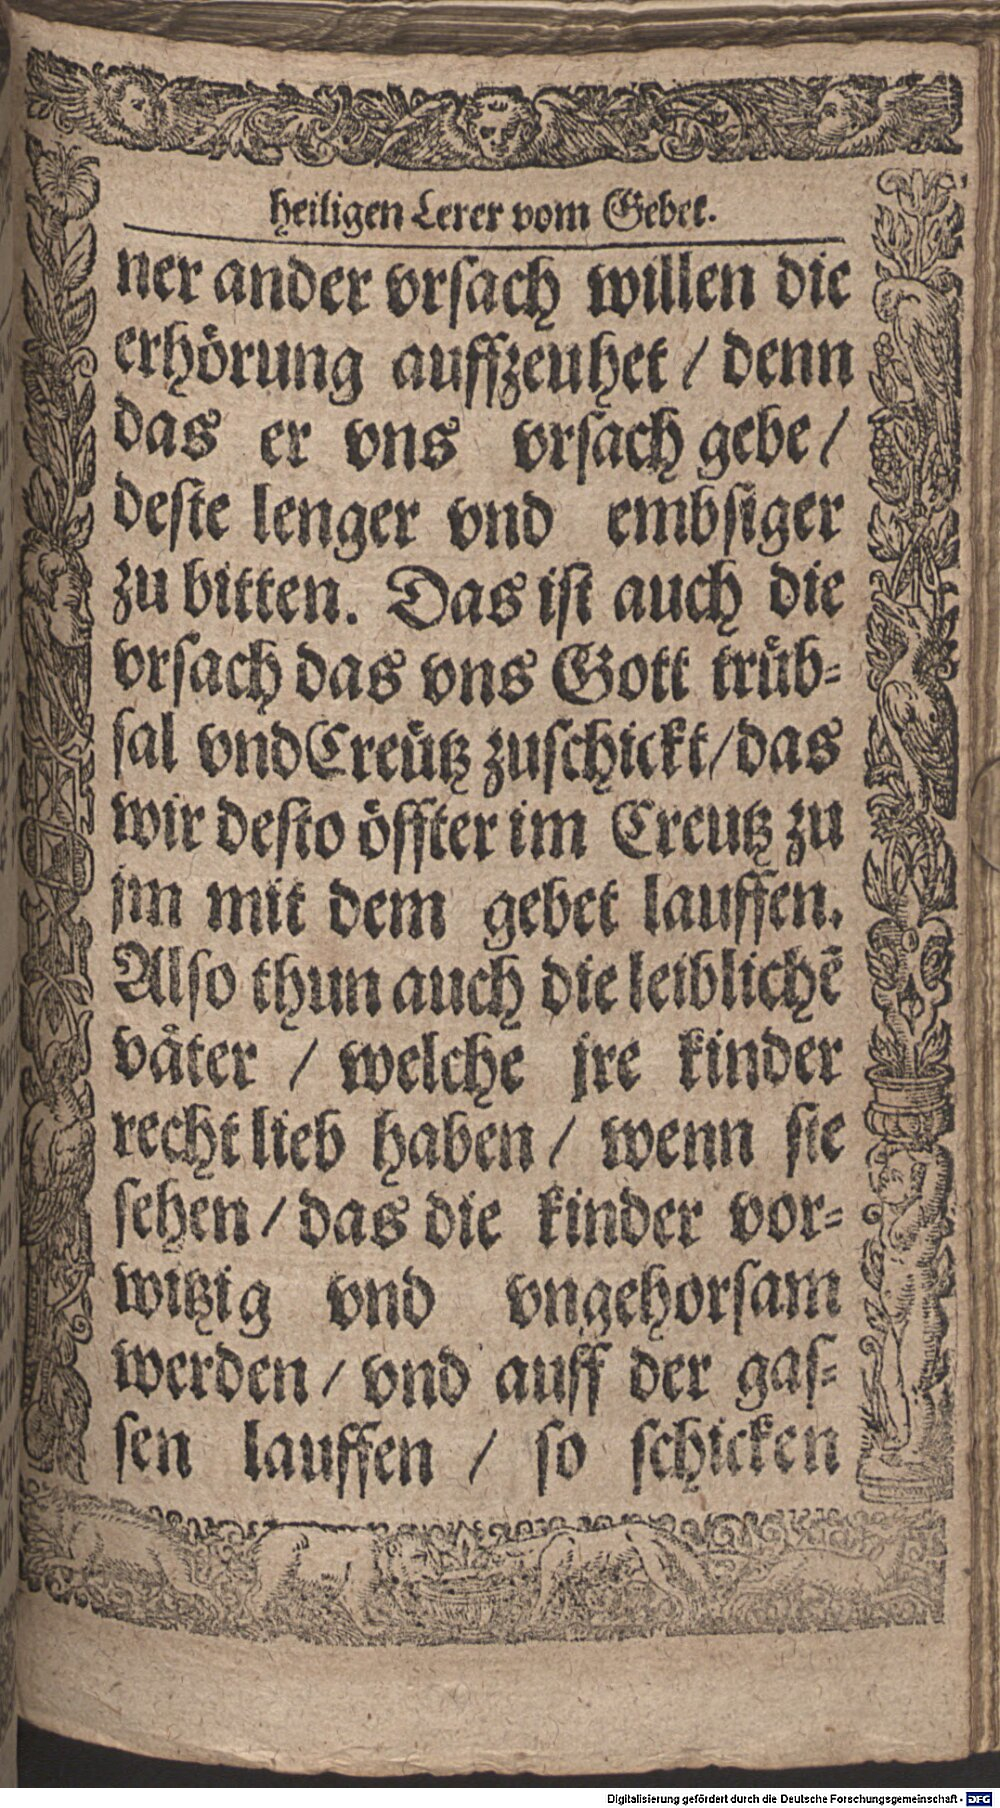 heiligen Lerer vom Gebet.
ner ander vrsach willen die
erhörung auffzeuhet / denn
das er vns vrsach gebe /
deste lenger vnd embsiger
zu bitten. Das ist auch die
vrsach das vns Gott trüb⸗
sal vnd Creütz zuschickt / das
wir desto öffter im Creutz zu
jm mit dem gebet lauffen.
Also thun auch die leiblichẽ
väter / welche jre kinder
recht lieb haben / wenn sie
sehen / das die kinder vor⸗
witzig vnd vngehorsam
werden / vnd auff der gas⸗
sen lauffen / so schicken
Digitalisierung gefördert durch die Deutsche Forschungsgemeinschaft - DFG